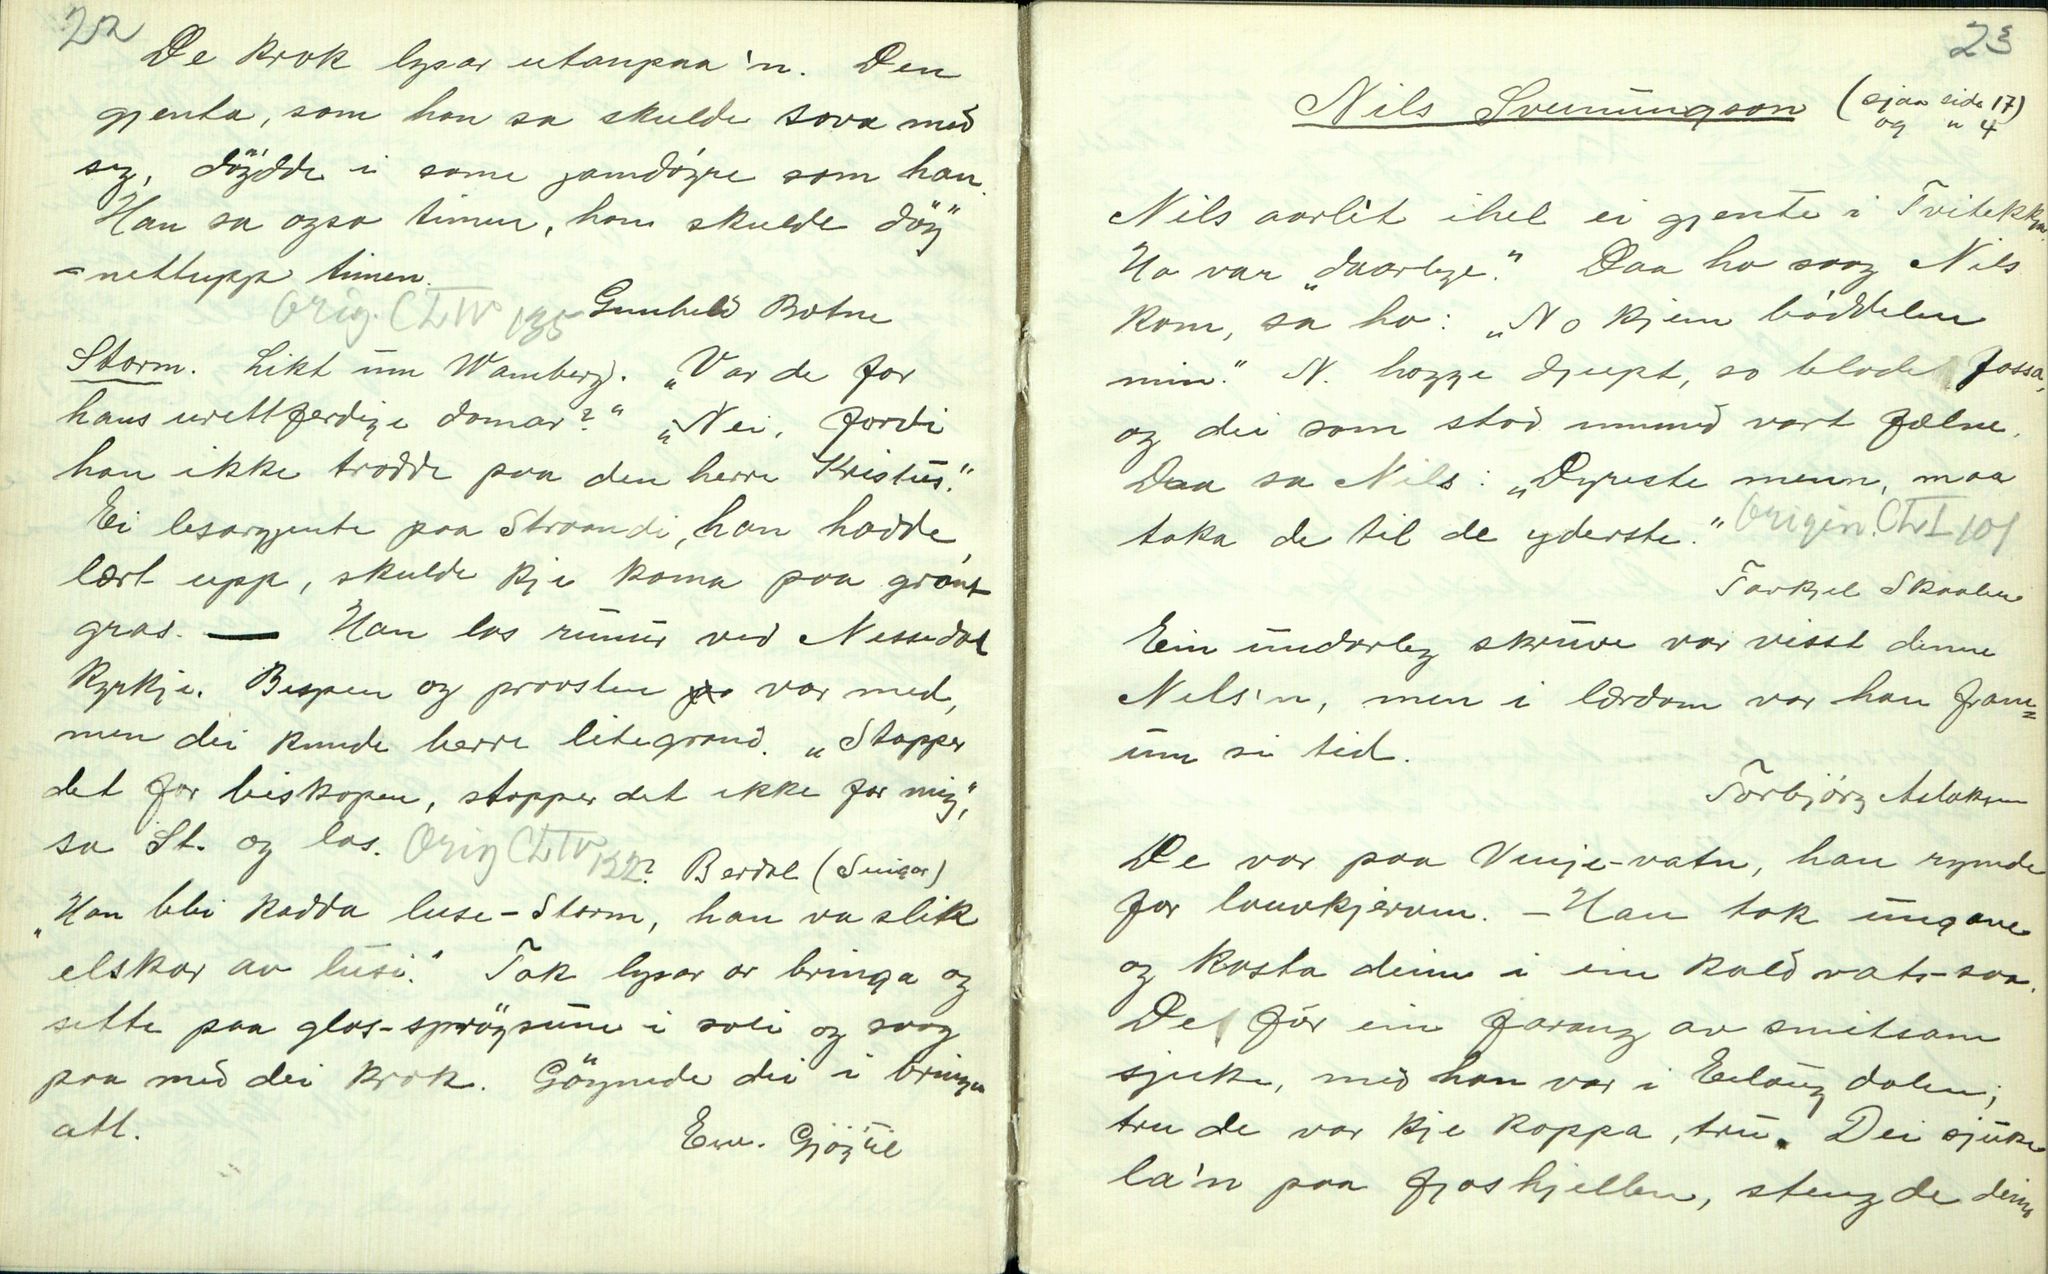 22
De krok lysar utanpaa'n. Den
gjenta, som han sa skulde sova med
seg, döydde i same jamdöyre som han.
Han sa ogso timen, han skulde döy
= nettupp timen.
Orig. CLIV 135 Gunhild Botne
Storm. Likt um Wamberg. „Var de for
hans urettferdige domar?" „Nei, fordi
han ikke trodde paa den herre Kristus."
Ei lesargjente paa Straandi, han hadde
lært upp, skulde kje koma paa grönt
gras. — Han las runur ved Nissedal
kyrkje. Bispen og proosten var med,
men dei kunde berre litegrand. „Stopper
det for biskopen, stopper det ikke for mig",
sa St. og las. Orig CLIV 132? Berdal (Snigar)
„Han blei kadda luse-Storm, han va slik
elskar av lusi." Tok lysar or bringa og
sette paa glas-spröysune i soli og saag
paa med dei krok. Göymde dei i bringa
att.
Ew. Gjöyül
23
Nils Svenungson (sjaa side 17)
og " 4
Nils aarlit ihel ei gjente i Tvitekkja.
Ho var „daarlege." Daa ho saag Nils
kom, sa ho: „No kjem böddelen
min." N. hogge djupt, so blode fossa,
og dei som stod ummed vart fælne.
Daa sa Nils: „Dyreste menn, maa
taka de til de yderste." Origin. CLI 101
Tarkjel Skaalen
Ein undarleg skruve var visst denne
Nils'n, men i lærdom var han fram=
um si tid.
Torbjörg Aslaksen
De var paa Vinje-vatn, han rymde
for louvkjerom. – Han tok ungane
og kasta deim i ein kald vats-saa.
De fór ein farang av smitsam
sjuke, med han var i Eelaug dalen;
tru de var kje koppa, tru. Dei sjuke
la'n paa fjoshjellen, stengde deim